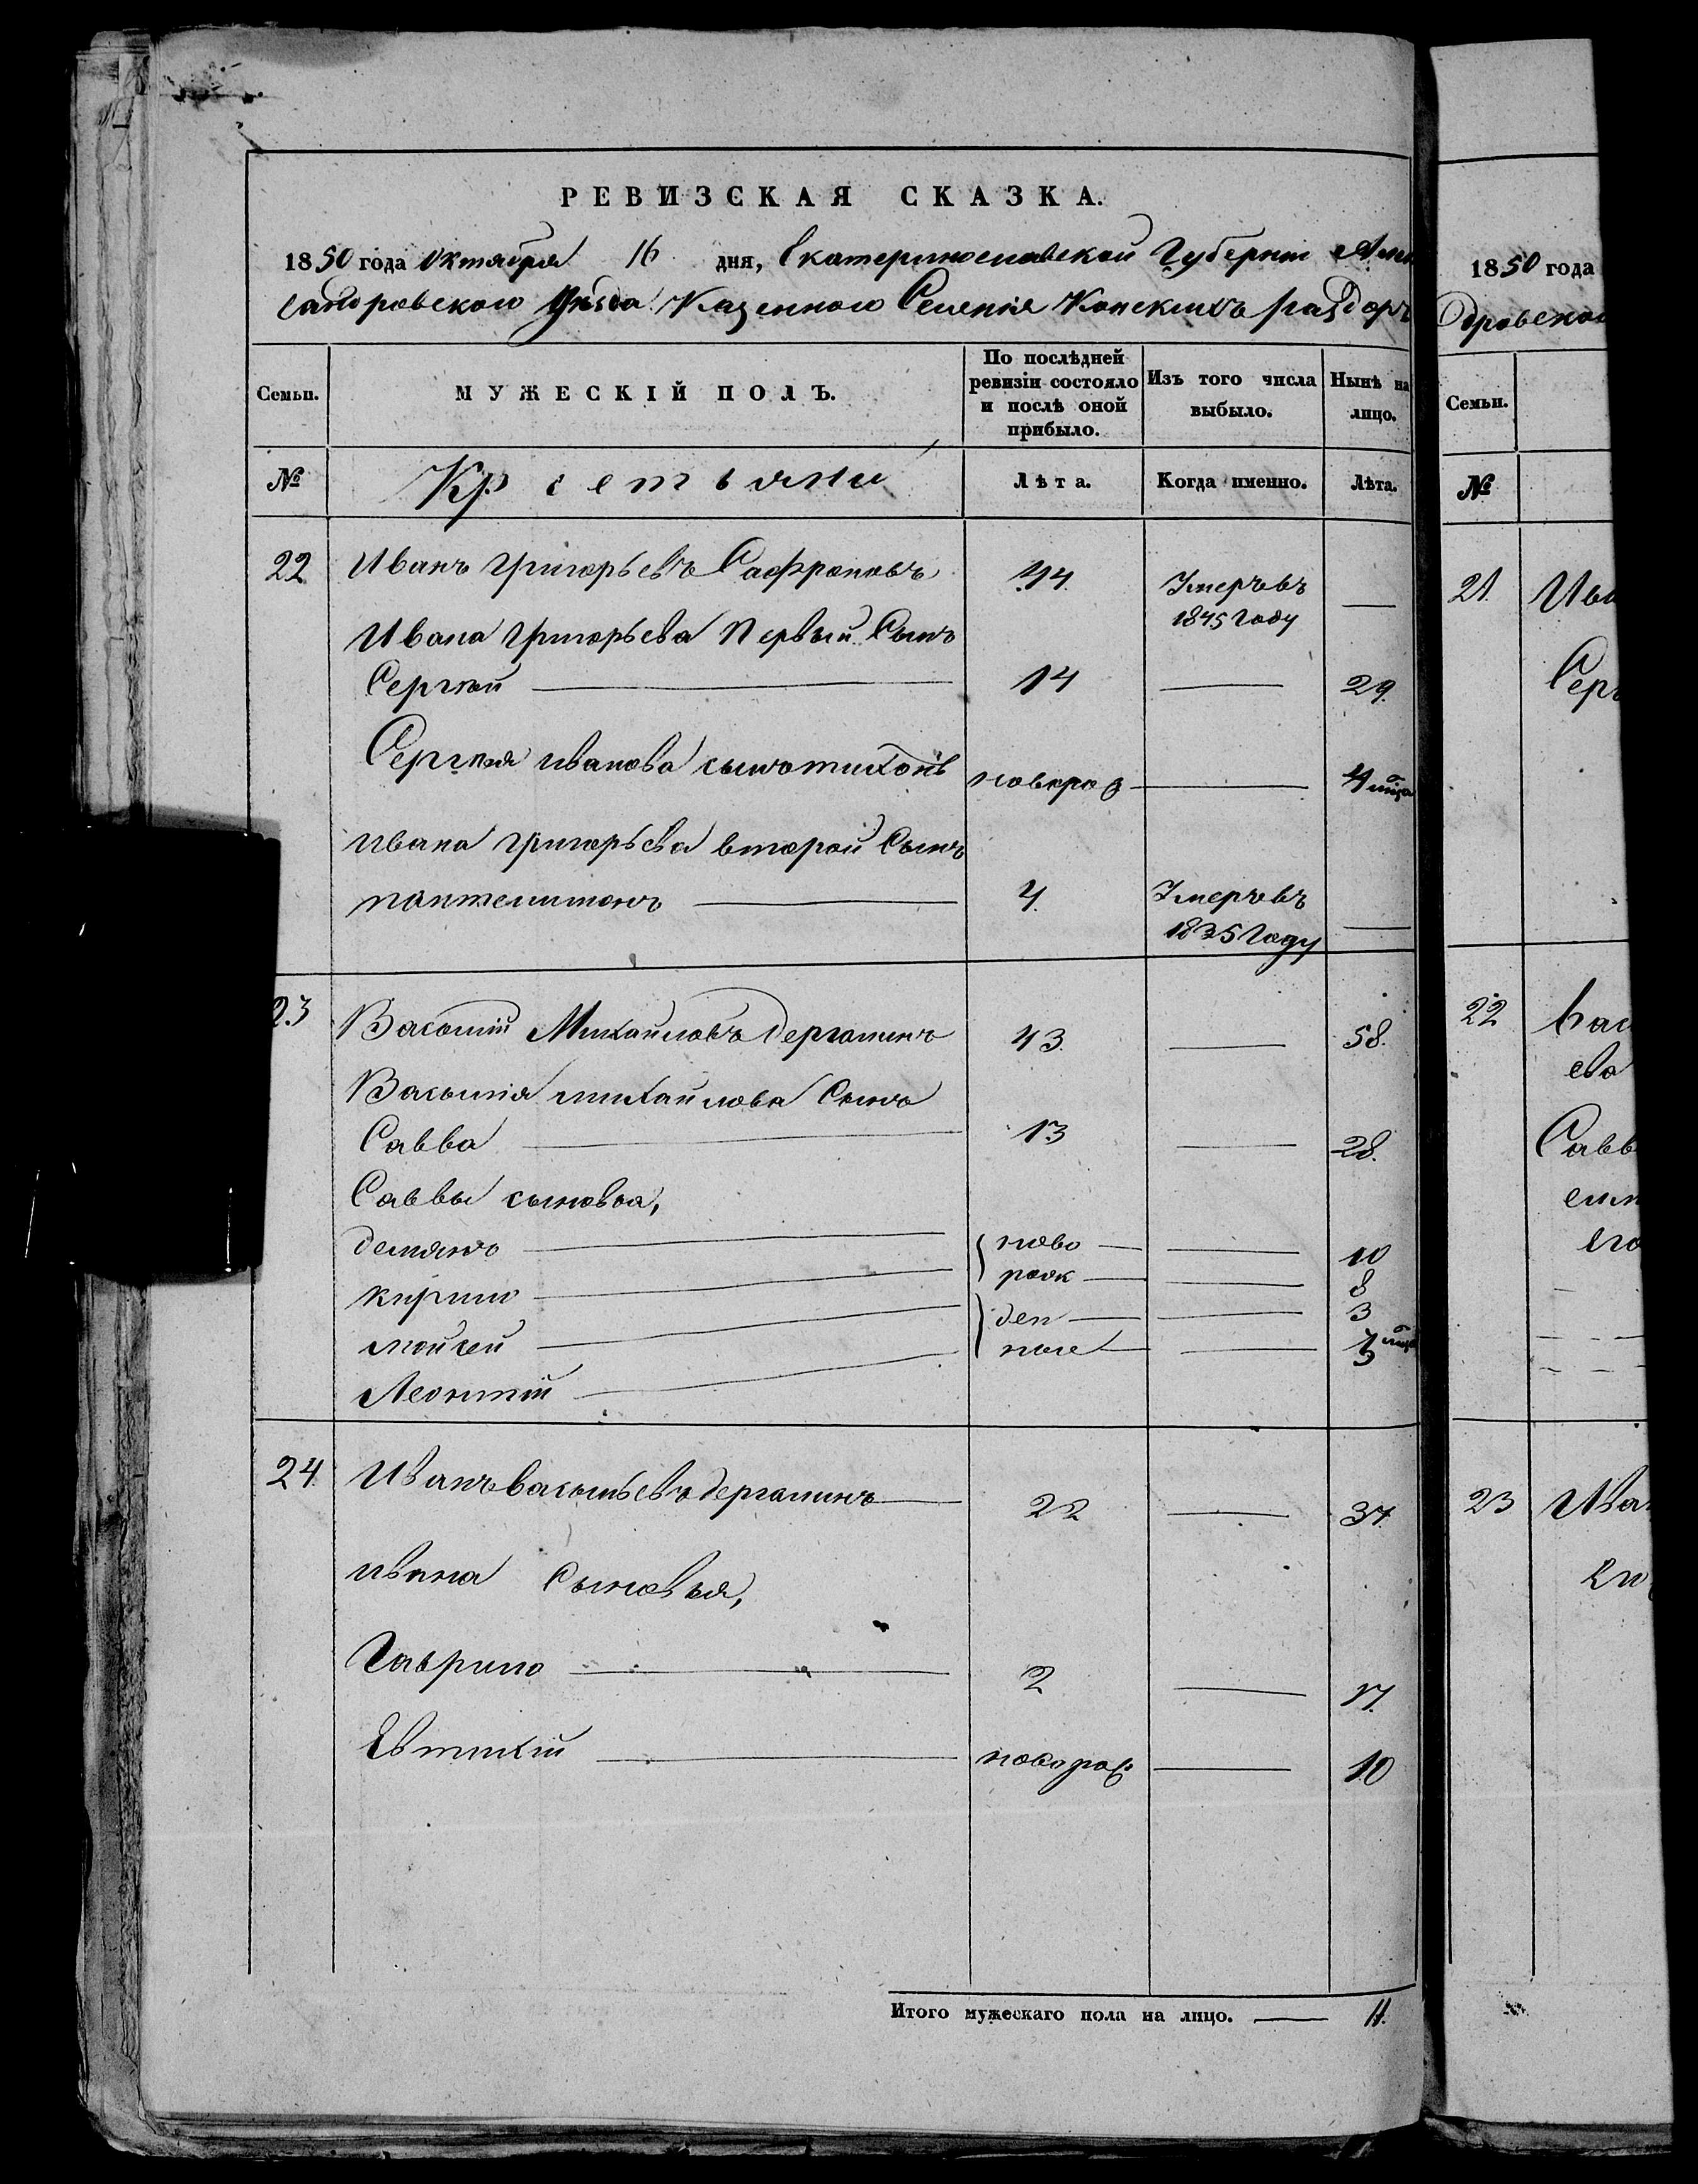 РЕВИЗСКАЯ СКАЗКА.
1850 года Октября 16 дня, Екатеринославской Губерніи Алек
сандровскаго Уѣзда Казеннаго Селенія Конскихъ раздоръ
Семьи. МУЖЕСКІЙ ПОЛЪ. По послѣдней ревизіи состояло и послѣ оной прибыло. Изъ того числа выбыло. Нынѣ на лицо.
№ Крестьяни Лѣта. Когда именно. Лѣта.
22 Иванъ Григорьевъ Сафроновъ 44. Умеръ въ 1845 Году —
Ивана Григорьева Первый Сынъ
Сергѣй 14 — 29.
Сергѣя иванова сынъ тихонъ новорож — 4 мца
ивана григорьева второй Сынъ
пантелимонъ 4. Умеръ въ 1835 Году —
23 Василій Михайловъ дергалинъ 43. — 58.
Василія михайлова Сынъ
Савва 13 — 28.
Саввы сыновья,
демянъ ново — 10
кирило рож — 8
мойсей ден — 3
Леонтій ные —
24. Иванъ васильевъ дергалинъ 22 — 37.
ивана Сыновья,
Гаврило 2 — 17.
Евтихій новорож — 10
Итого мужескаго пола на лицо. — 11.
1850 года
дровской
Семьи.
№
21. Ива
Серг
22 Вас
ева
Савв
его
23 Иван